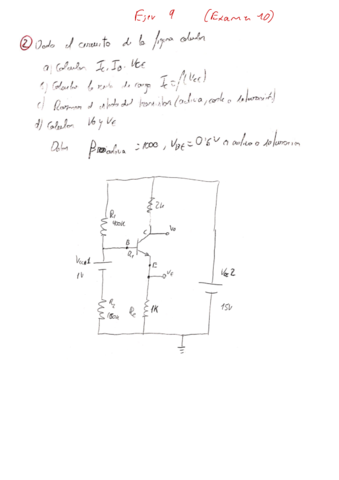 Ejer 9 (Examen 10)
② Dado el circuito de la figura calcular
a) Calcular Ic, IB, VCE
c) Calcular la recta de carga Ic = f(VCE)
c) Razonar el estado del transistor (activa, corte o saturación)
d) Calcular Vo y VE
Datos β activa = 1000, VBE = 0'6V activa o saturación
2k
R1
C
Vo
B
Q1
E
VE
1V
VCC2
15V
R2
RE
1K